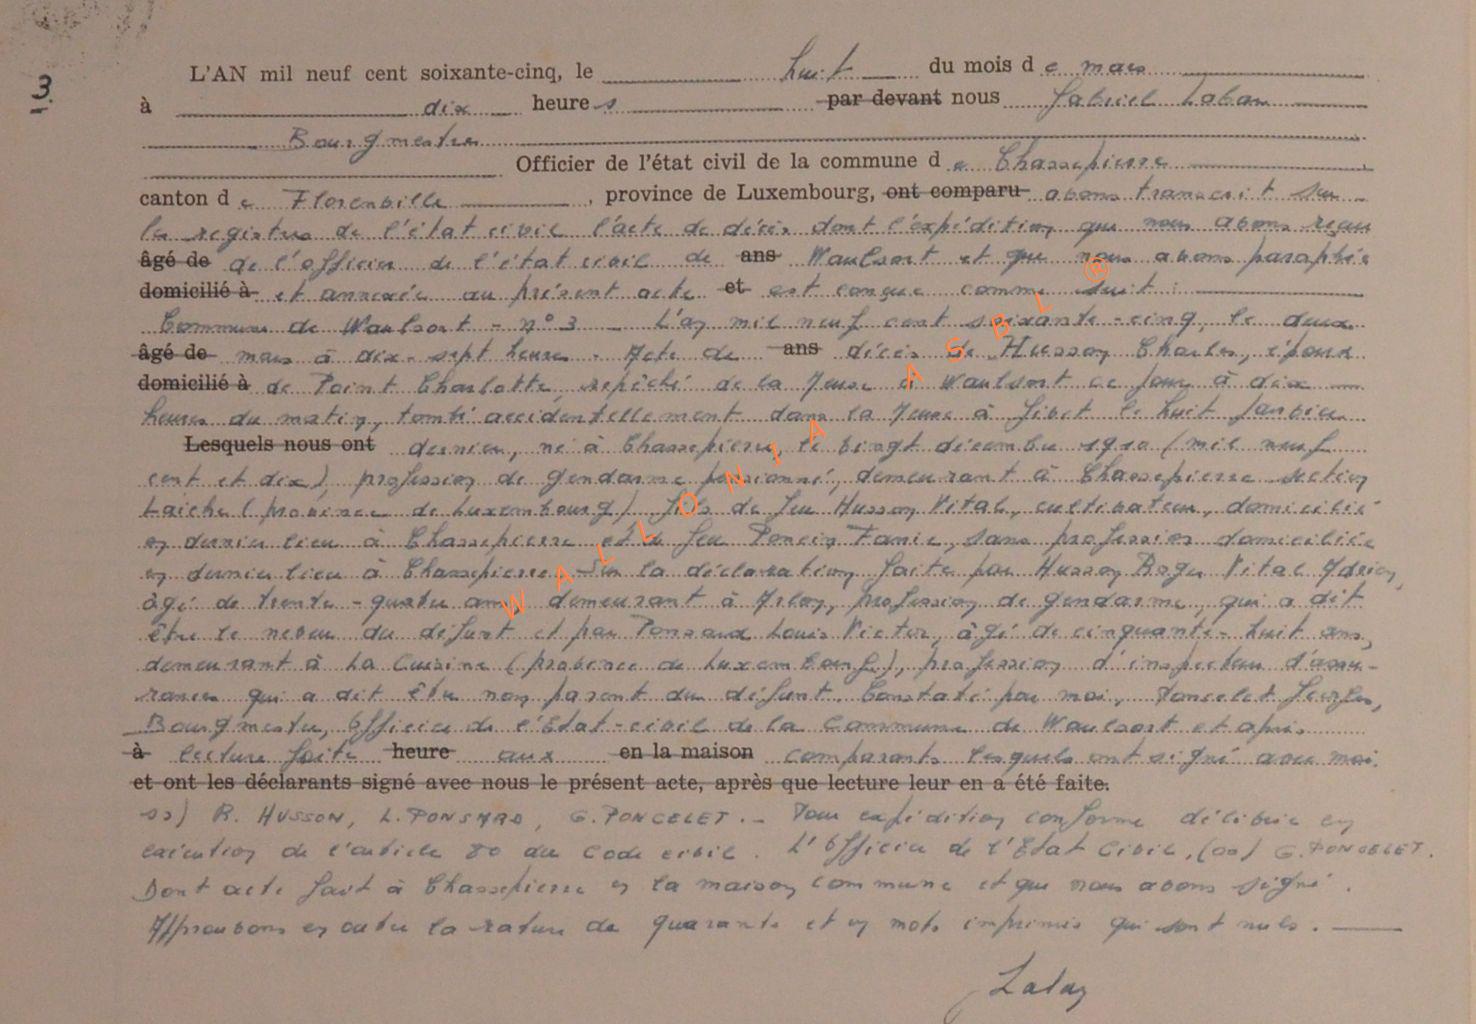 3.
L'AN mil neuf cent soixante-cinq, le huit du mois de mars
à dix heures par devant nous Gabriel Laban
Bourgmestre
Officier de l'état civil de la commune de Chassepierre
canton de Florenville, province de Luxembourg, ont comparu avons transcrit sur
les registres de l'état civil l'acte de décès dont l'expédition que nous avons reçue
âgé de de l'officier de l'état civil de ans Waulsort et que nous avons paraphée
domicilié à et annexée au présent acte et est conçue comme suit :
Commune de Waulsort - n° 3 - L'an mil neuf cent soixante-cinq, le deux
âgé de mars à dix-sept heures. Acte de ans décès de Husson Charles, époux
domicilié à de Point Charlotte, repêché de la Meuse à Waulsort ce jour à dix
heures du matin, tombé accidentellement dans la Meuse à Givet le huit janvier
Lesquels nous ont dernier, né à Chassepierre, le vingt décembre 1910 (mil neuf
cent et dix), profession de gendarme pensionné, demeurant à Chassepierre section
Laiche (province de Luxembourg) fils de feu Husson Vital, cultivateur, domicilié
en dernier lieu à Chassepierre et de feu Poncin Fanie, sans profession domiciliée
en dernier lieu à Chassepierre. Sur la déclaration faite par Husson Roger Vital Adrien,
âgé de trente-quatre ans demeurant à Arlon, profession de gendarme, qui a dit
être le neveu du défunt et par Ponsard Louis Victor, âgé de cinquante-huit ans,
demeurant à La Cuisine (province de Luxembourg), profession d'inspecteur d'assu-
rances qui a dit être non parent du défunt. Constaté par moi, Poncelet Georges,
Bourgmestre, Officier de l'Etat-civil de la Commune de Waulsort et après
à lecture faite heure aux en la maison comparants lesquels ont signé avec moi.
et ont les déclarants signé avec nous le présent acte, après que lecture leur en a été faite.
ss) R. HUSSON, L. PONSARD, G. PONCELET. - Pour expédition conforme délivrée en
exécution de l'article 80 du Code civil. L'Officier de l'Etat Civil, (ss) G. PONCELET.
Dont acte fait à Chassepierre en la maison commune et que nous avons signé.
Approuvons en outre la rature de quarante et un mots imprimés qui sont nuls.
WALLONIA ASBL ®